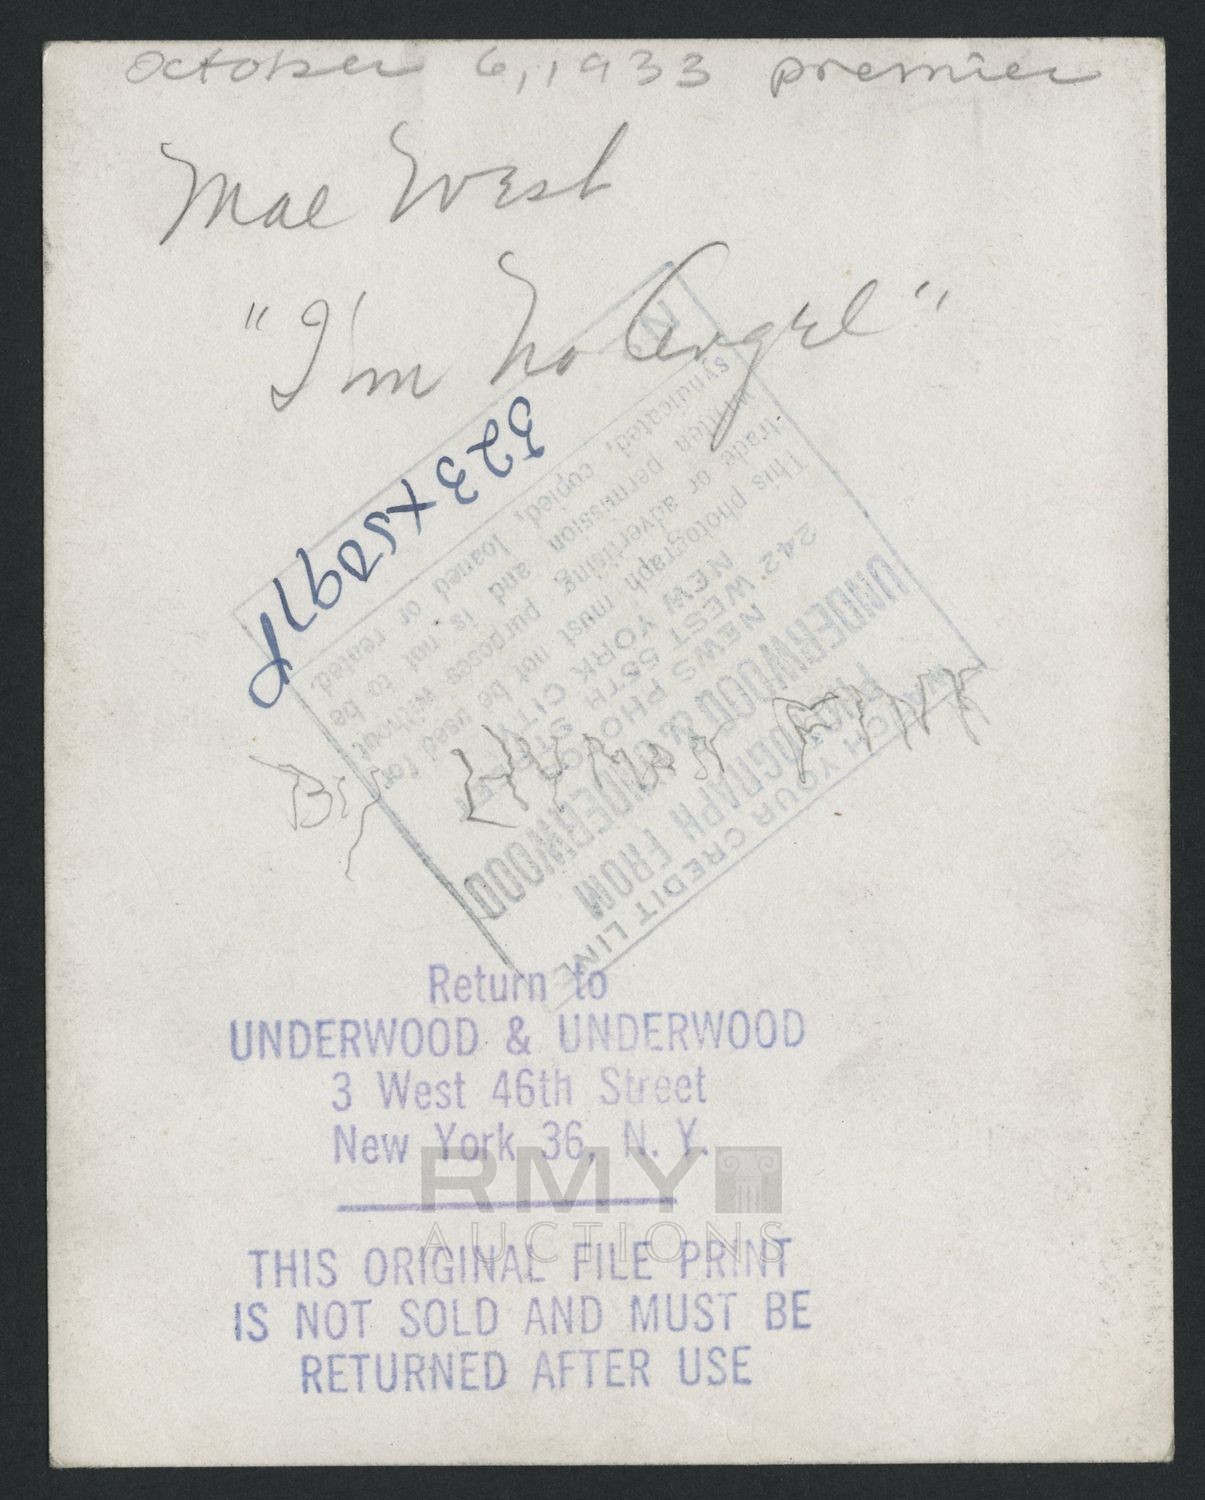 October 6, 1933 premier
Mae West
"I'm No Angel"
523X50971
By
FINK
WATCH YOUR CREDIT LINE
PHOTOGRAPH FROM
UNDERWOOD & UNDERWOOD
NEWS PHOTOS
242 WEST 55TH STREET
NEW YORK CITY
This photograph must not be used for
trade or advertising purposes without
written permission and is not to be
syndicated, copied, loaned or rented.
N.
Return to
UNDERWOOD & UNDERWOOD
3 West 46th Street
New York 36, N. Y.
RMY
AUCTIONS
THIS ORIGINAL FILE PRINT
IS NOT SOLD AND MUST BE
RETURNED AFTER USE